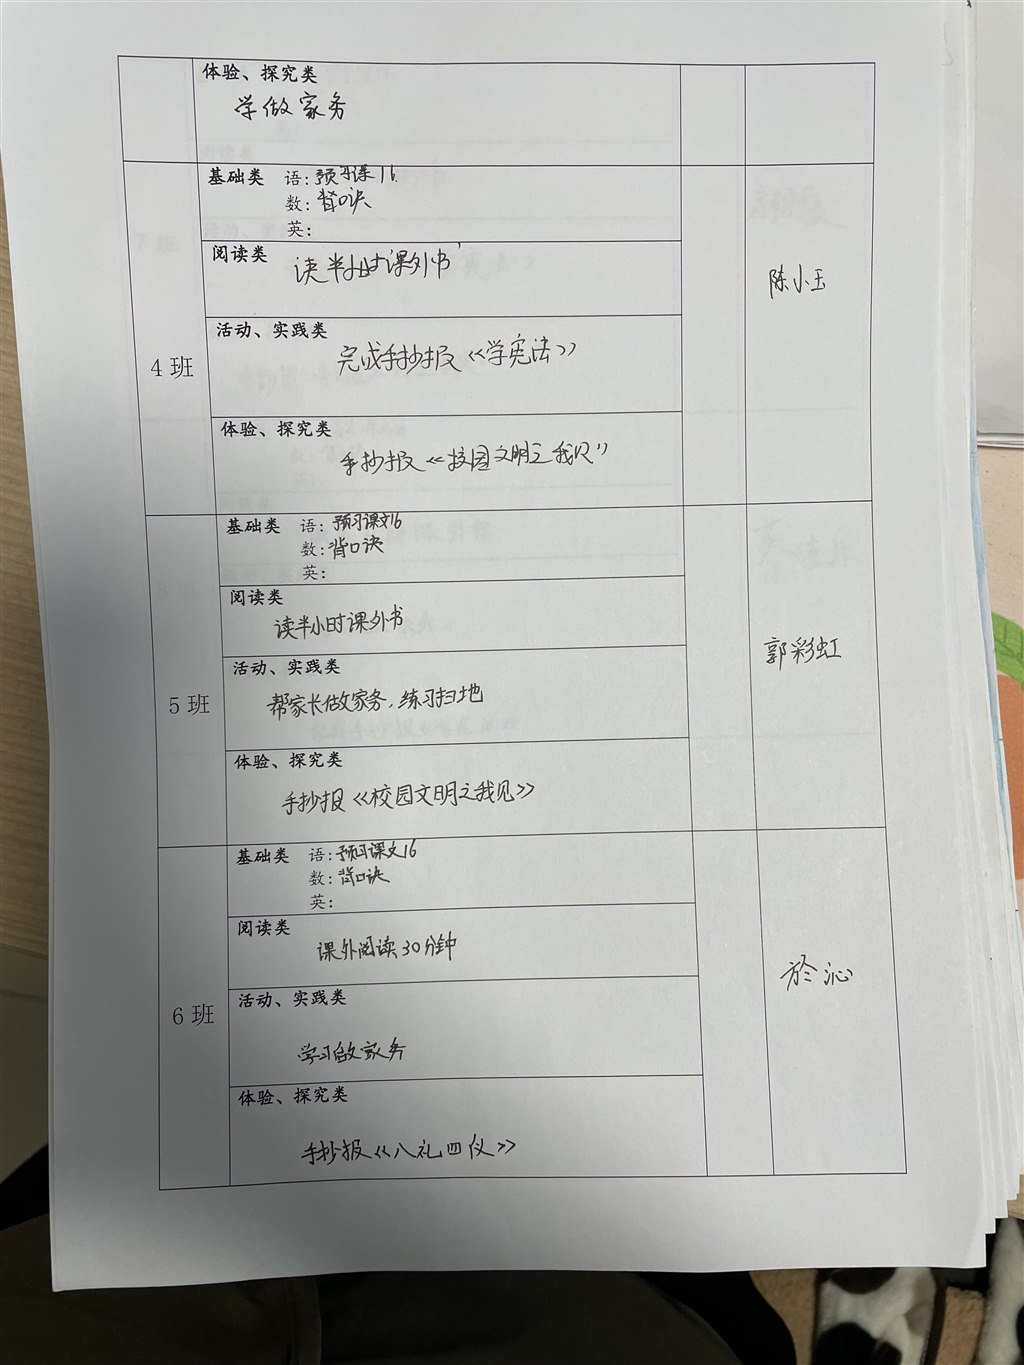 体验、探究类
学做家务
4班
基础类 语: 预习课16.
数: 背口诀
英:
阅读类
读半小时课外书
活动、实践类
完成手抄报《学宪法》
体验、探究类
手抄报《校园文明之我见》
陈小玉
5班
基础类 语: 预习课文16
数: 背口诀
英:
阅读类
读半小时课外书
活动、实践类
帮家长做家务,练习扫地
体验、探究类
手抄报《校园文明之我见》
郭彩虹
6班
基础类 语: 预习课文16
数: 背口诀
英:
阅读类
课外阅读30分钟
活动、实践类
学习做家务
体验、探究类
手抄报《八礼四仪》
於沁